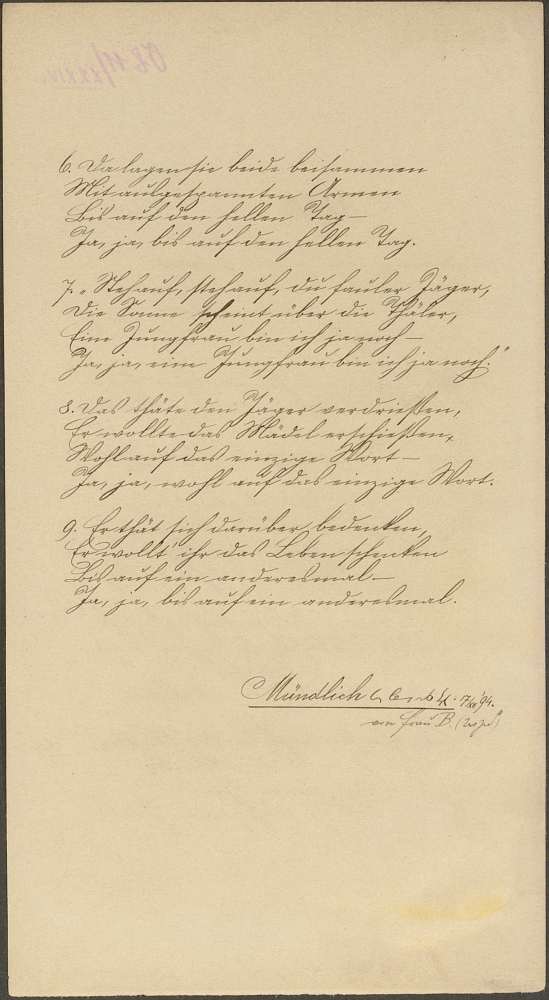 6. Da lagen sie beide beisammen
Mit ausgespannten Armen
Bis auf den hellen Tag –
Ja, ja, bis auf den hellen Tag.
7. „Steh auf, steh auf, du fauler Jäger,
Die Sonne scheint über die Thäler,
Eine Jungfrau bin ich ja noch –
Ja, ja, eine Jungfrau bin ich ja noch.“
8. Das thäte den Jäger verdrießen,
Er wollte das Mädel erschießen,
Wohl auf das einzige Wort –
Ja, ja, wohl auf das einzige Wort.
9. Er thät sich darüber bedenken,
Er wollt' ihr das Leben schenken
Bis auf ein anderesmal –
Ja, ja, bis auf ein anderesmal.
Mündlich 94.
von Frau B.